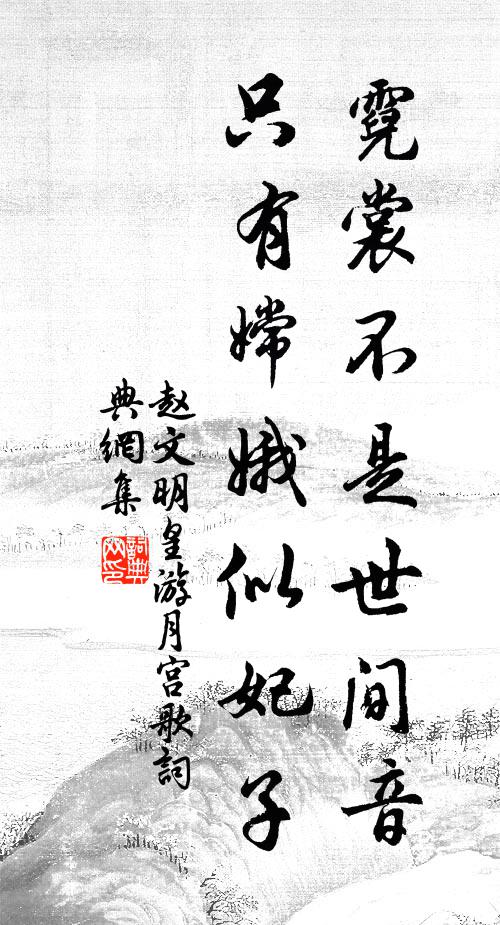 霓裳不是世间音
只有嫦娥似妃子
赵文明皇游月宫歌詞
典網集
詞典网印